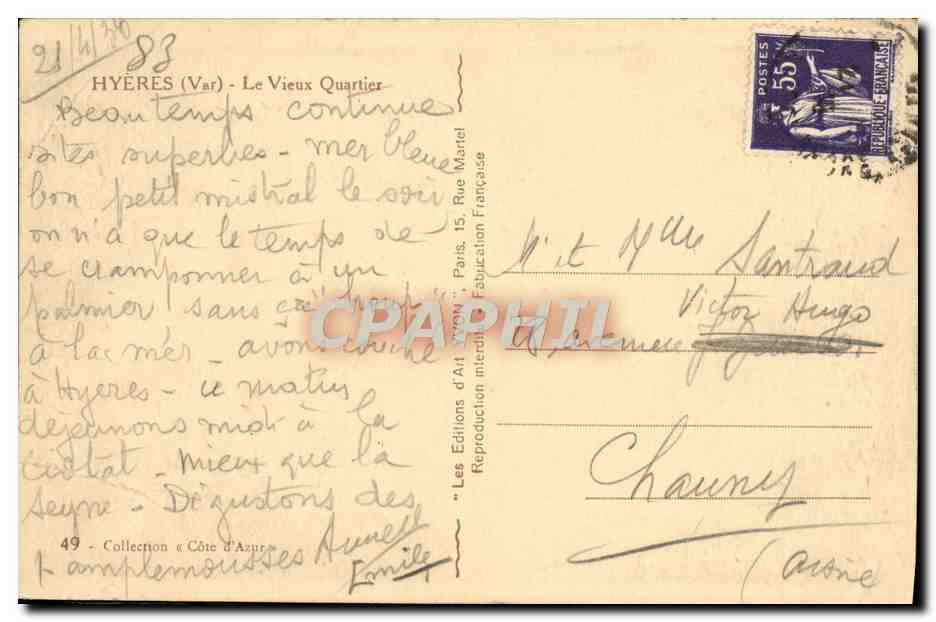 21/4/38
83
HYÈRES (Var) - Le Vieux Quartier
Beau temps continue
sites superbes - mer bleue
bon petit mistral le soir
on n'a que le temps de
se cramponner à un
palmier sans ça
à la mer - avons couché
à Hyères - ce matin
déjeunons midi à la
Ciotat - mieux que la
Seyne - Dégustons des
pamplemousses
Emile
49 - Collection « Côte d'Azur
"Les Editions d'Art YVON", Paris, 15, Rue Martel
Reproduction interdite - Fabrication Française
POSTES
55
REPUBLIQUE FRANÇAISE
CPAPHIL
M et Mme Santraud
Victor Hugo
Chauny
(Aisne